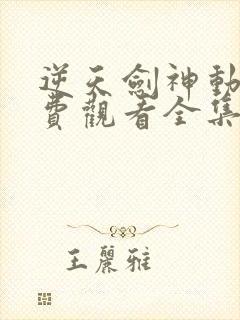 逆天劍神動
費觀看全集
王麗雅